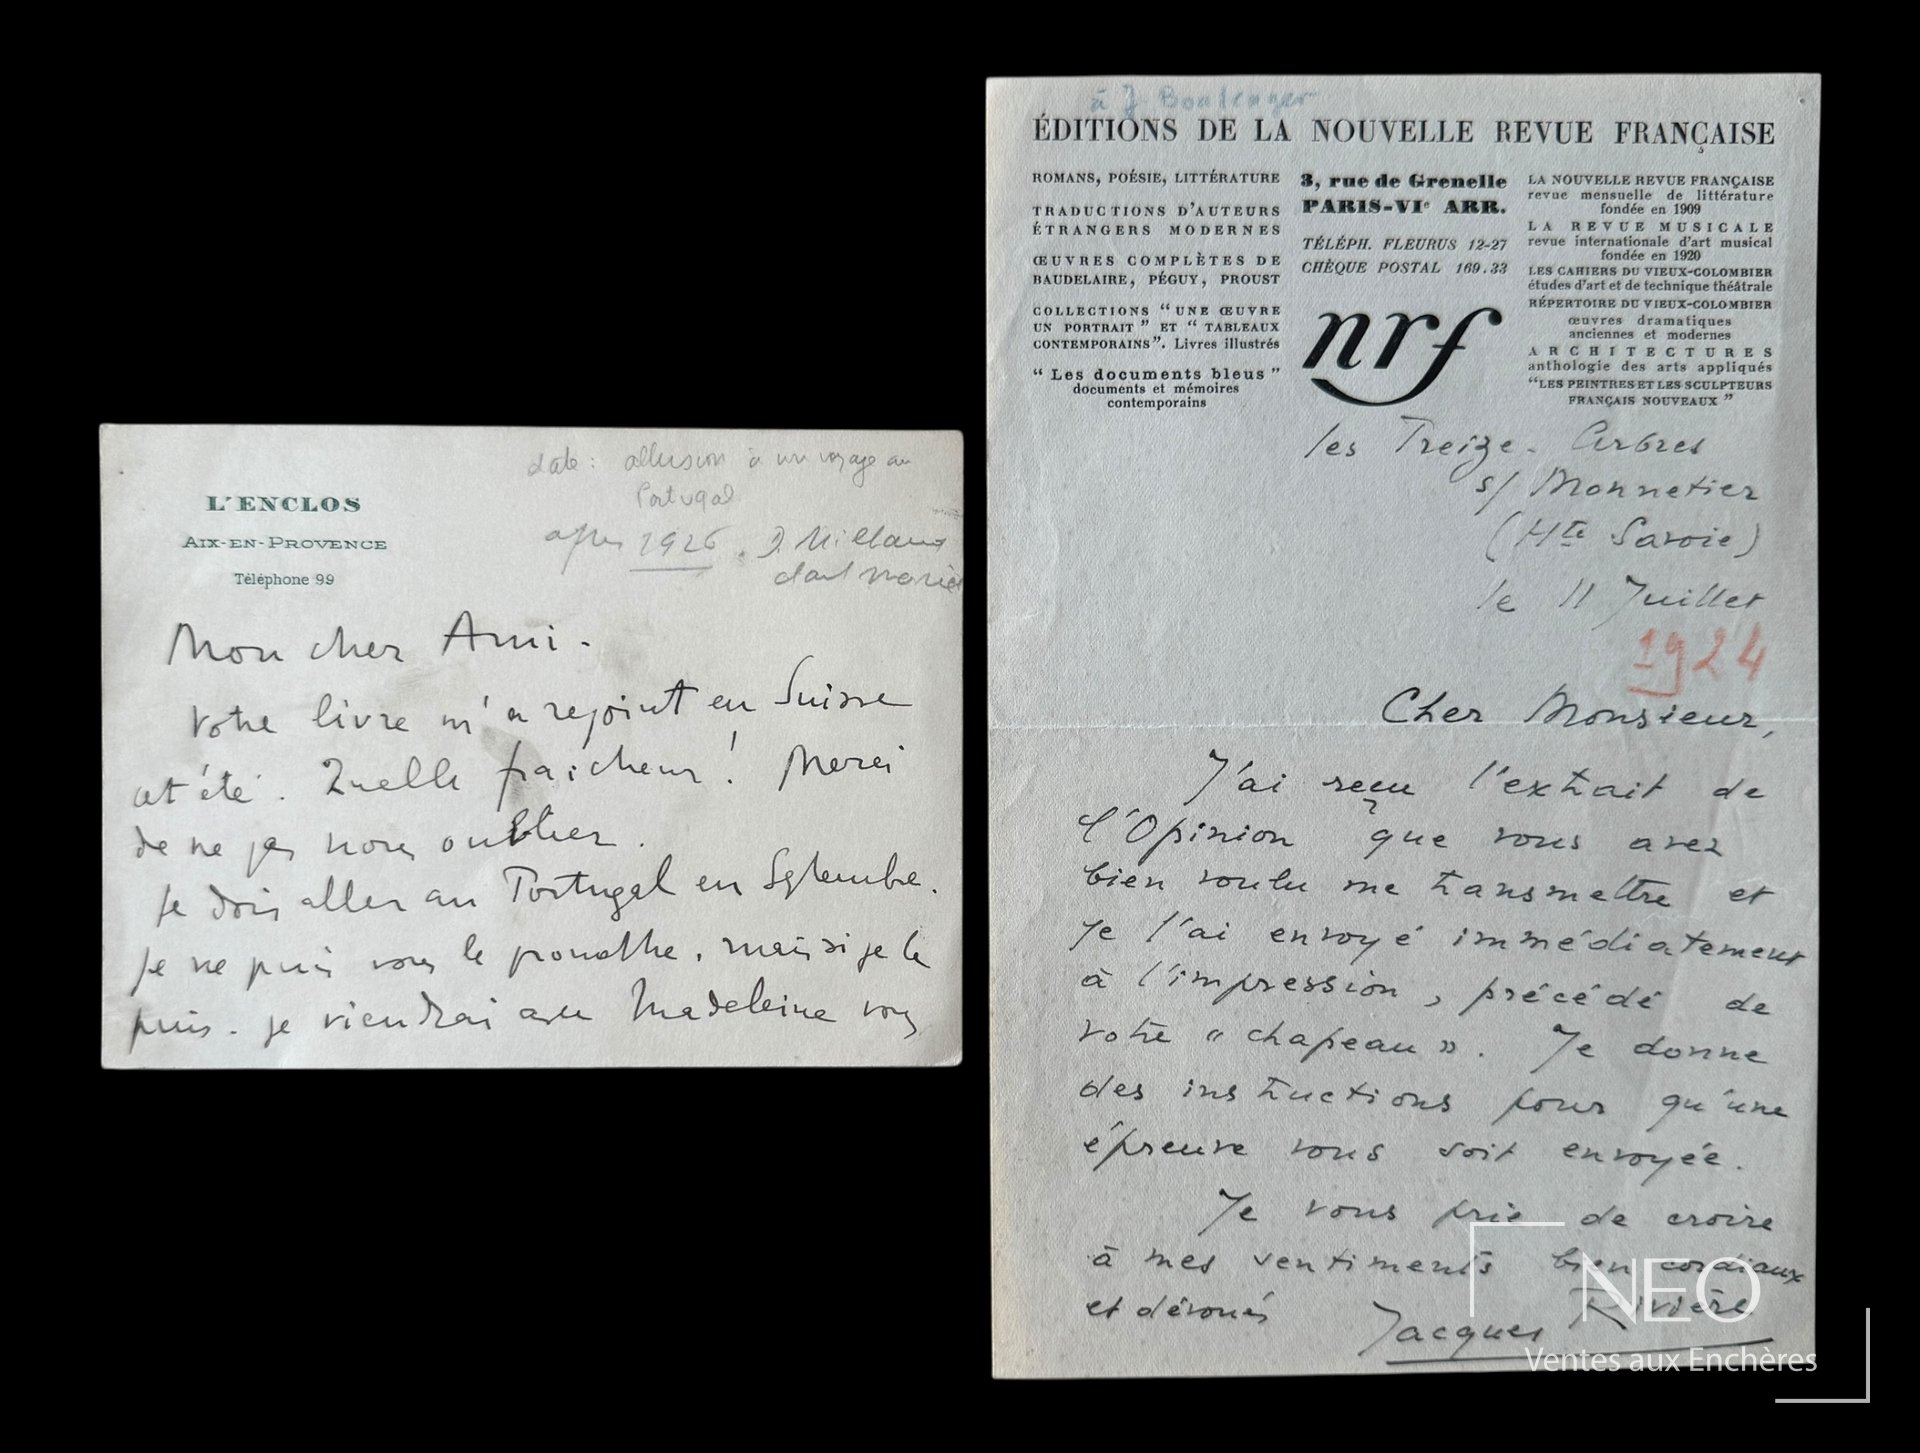 L'ENCLOS
AIX-EN-PROVENCE
Téléphone 99
date: allusion à un voyage au
Portugal
après 1926. D. Milhaud
étant marié
Mon cher Ami.
Votre livre m'a rejoint en Suisse
cet été. Quelle fraicheur! Merci
de ne pas nous oublier.
Je dois aller au Portugal en Septembre.
Je ne puis vous le promettre, mais si je le
puis. je viendrai avec Madeleine vous
à J. Boulenger
ÉDITIONS DE LA NOUVELLE REVUE FRANÇAISE
ROMANS, POÉSIE, LITTÉRATURE
TRADUCTIONS D'AUTEURS
ÉTRANGERS MODERNES
ŒUVRES COMPLÈTES DE
BAUDELAIRE, PÉGUY, PROUST
COLLECTIONS "UNE ŒUVRE
UN PORTRAIT" ET "TABLEAUX
CONTEMPORAINS". Livres illustrés
"Les documents bleus"
documents et mémoires
contemporains
3, rue de Grenelle
PARIS-VIe ARR.
TÉLÉPH. FLEURUS 12-27
CHÈQUE POSTAL 169.33
nrf
LA NOUVELLE REVUE FRANÇAISE
revue mensuelle de littérature
fondée en 1909
LA REVUE MUSICALE
revue internationale d'art musical
fondée en 1920
LES CAHIERS DU VIEUX-COLOMBIER
études d'art et de technique théâtrale
RÉPERTOIRE DU VIEUX-COLOMBIER
œuvres dramatiques
anciennes et modernes
ARCHITECTURES
anthologie des arts appliqués
"LES PEINTRES ET LES SCULPTEURS
FRANÇAIS NOUVEAUX"
les Treize-Arbres
s/ Monnetier
(Hte Savoie)
le 11 Juillet
1924
Cher Monsieur,
J'ai reçu l'extrait de
l'Opinion que vous avez
bien voulu me transmettre et
je l'ai envoyé immédiatement
à l'impression, précédé de
votre « chapeau ». Je donne
des instructions pour qu'une
épreuve vous soit envoyée.
Je vous prie de croire
à mes sentiments bien cordiaux
et dévoués
Jacques Rivière
NEO
Ventes aux Enchères